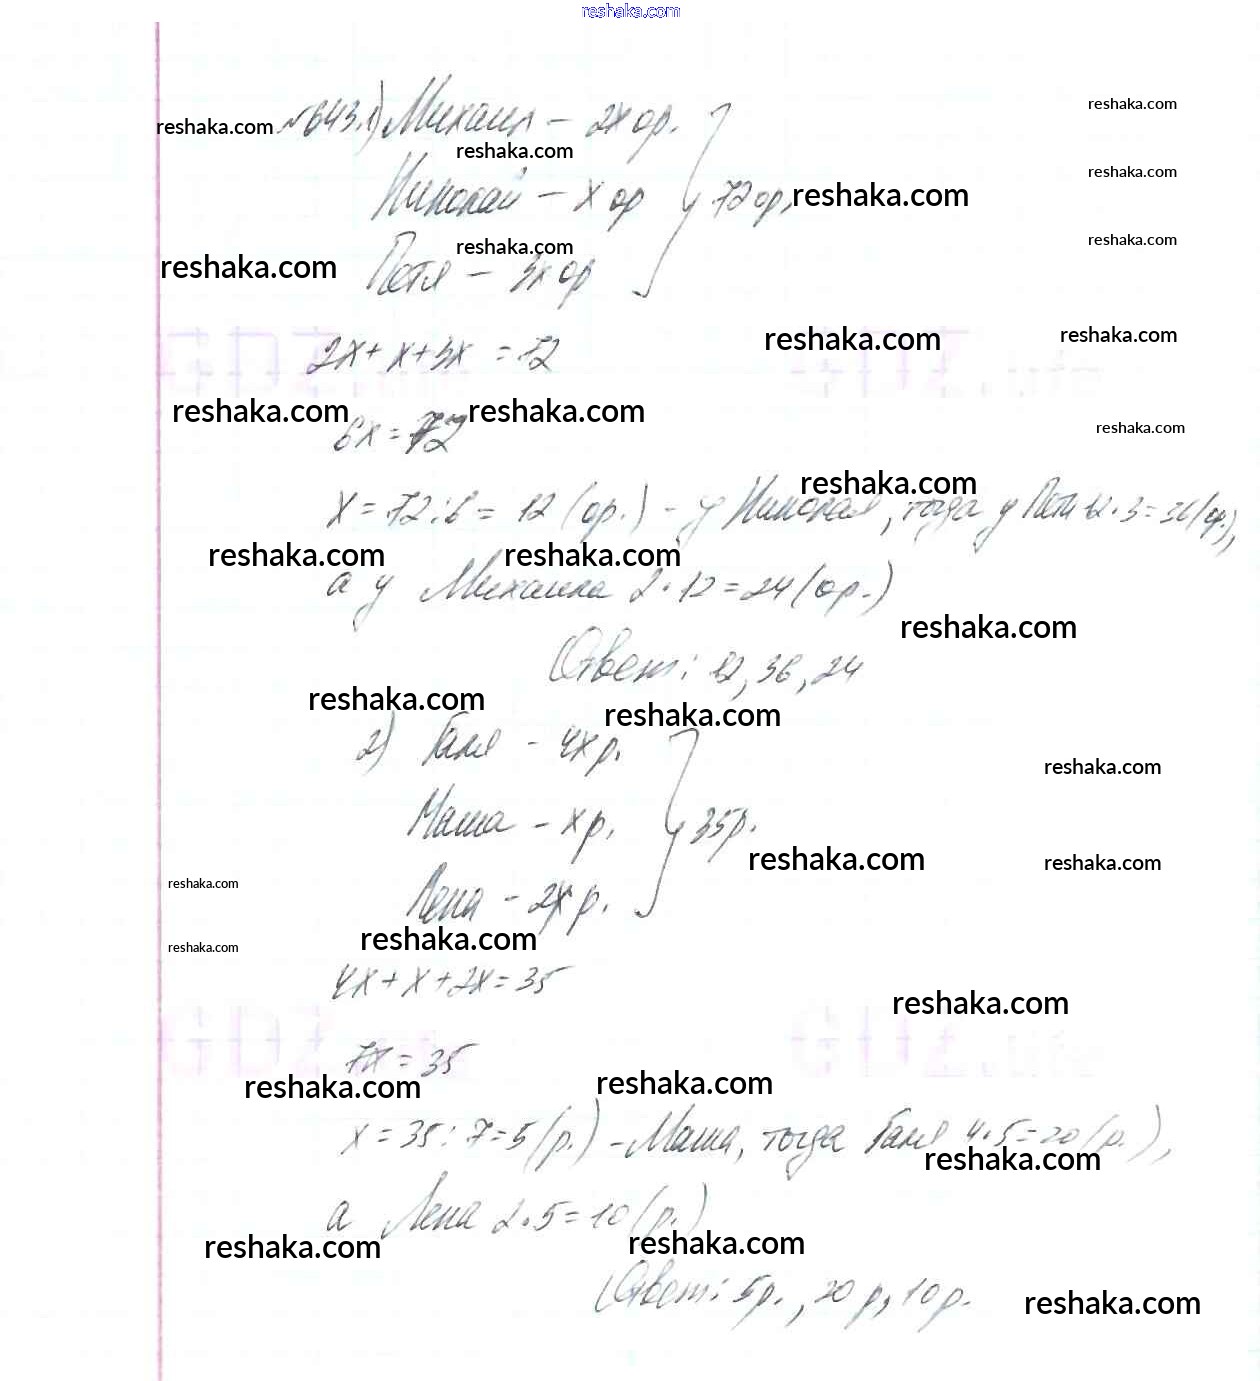 reshaka.com
№643.1) Михаил – 2х ор.
reshaka.com
reshaka.com
reshaka.com
reshaka.com
Николай – х ор } 72 ор,
reshaka.com
reshaka.com
reshaka.com
reshaka.com
Петя – 3х ор
reshaka.com
reshaka.com
2х + х + 3х = 72
reshaka.com
reshaka.com
6х = 72
reshaka.com
reshaka.com
х = 72 : 6 = 12 (ор.) – у Николая, тогда у Пети 12 · 3 = 36 (ор.),
reshaka.com
reshaka.com
а у Михаила 2 · 12 = 24 (ор.)
reshaka.com
Ответ: 12, 36, 24
reshaka.com
reshaka.com
2) Галя – 4х р.
reshaka.com
Маша – х р. } 35 р.
reshaka.com
reshaka.com
reshaka.com
Лена – 2х р.
reshaka.com
reshaka.com
4х + х + 2х = 35
reshaka.com
7х = 35
reshaka.com
reshaka.com
х = 35 : 7 = 5 (р.) – Маша, тогда Галя 4 · 5 = 20 (р.),
reshaka.com
а Лена 2 · 5 = 10 (р.)
reshaka.com
reshaka.com
Ответ: 5р., 20 р, 10 р.
reshaka.com